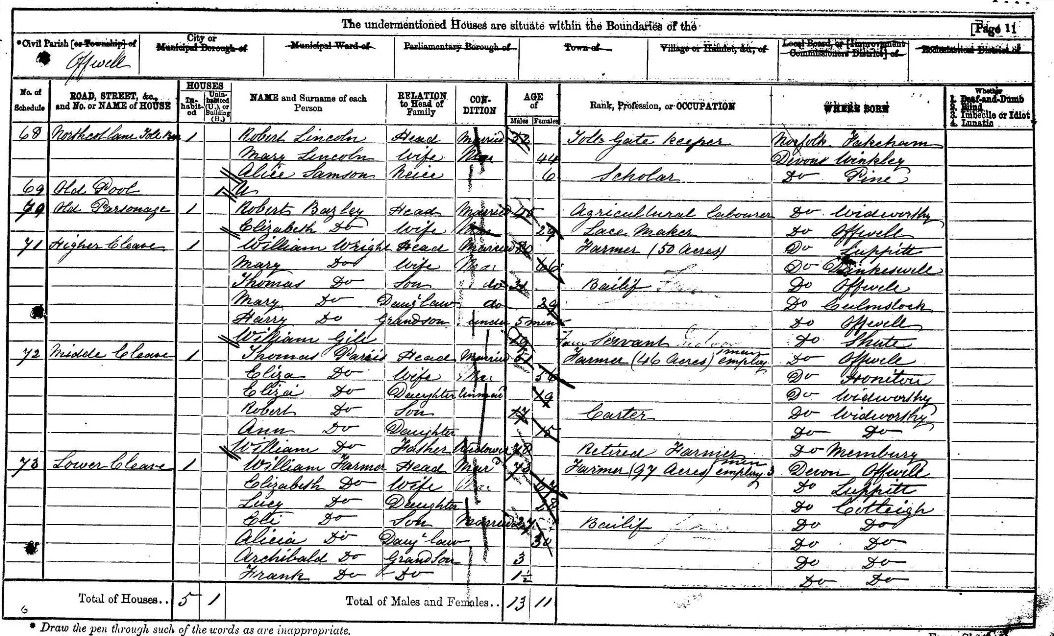 The undermentioned Houses are situate within the Boundaries of the
[Page 11
*Civil Parish [or Township] of Offwell
City or Municipal Borough of
Municipal Ward of
Parliamentary Borough of
Town of
Village or Hamlet, &c., of
Local Board or [Improvement Commissioners District] of
Ecclesiastical District of
No. of Schedule
ROAD, STREET, &c., and No. or NAME of HOUSE
HOUSES Inhabited Uninhabited (U.), or Building (B.)
NAME and Surname of each Person
RELATION to Head of Family
CONDITION
AGE of Males Females
Rank, Profession, or OCCUPATION
WHERE BORN
Whether 1. Deaf-and-Dumb 2. Blind 3. Imbecile or Idiot 4. Lunatic
68 Northcot lane 1 Robert Lincoln Head Married 52 Toll Gate Keeper Norfolk Fakenham
Mary Lincoln Wife Mar 44 Devon Winkley
Alice Samson Neice 6 Scholar Do Pine
69 Old Pool
70 Old Parsonage 1 Robert Bazley Head Married 45 Agricultural Labourer Do Widworthy
Elizabeth Do Wife Mar 29 Lace Maker Do Offwell
71 Higher Cleave 1 William Wright Head Married Farmer (50 Acres) Do Luppitt
Mary Do Wife Mar 66 Do Dunkeswell
Thomas Do Son do Bailif Do Offwell
Mary Do Daur law do 29 Do Culmstock
Harry Do Grandson under 5 mon Do Offwell
William Gill 19 Farm Servant Do Shute
72 Middle Cleave 1 Thomas Parris Head Married 51 Farmer (46 Acres) employ man Do Offwell
Eliza Do Wife Mar 56 Do Honiton
Eliza Do Daughter Unmar 19 Do Widworthy
Robert Do Son 17 Carter Do Widworthy
Ann Do Daughter 15 Do Do
William Do Father Widower 78 Retired Farmer Do Membury
73 Lower Cleave 1 William Farmer Head Mard 73 Farmer (97 Acres) employ 3 men Devon Offwill
Elizabeth Do Wife Mar 67 Do Luppitt
Lucy Do Daughter 28 Do Cotleigh
Eli Do Son Married 27 Bailif Do Do
Alicia Do Daur law 30 Do Do
Archibald Do Grandson 3 Do Do
Frank Do Do 1½ Do Do
Total of Houses.. 5 1 Total of Males and Females.. 13 11
6
* Draw the pen through such of the words as are inappropriate.